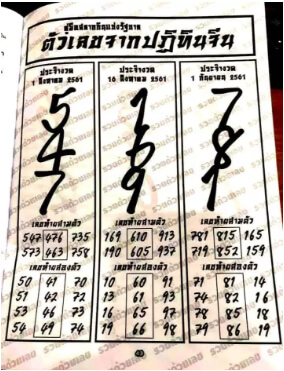 คู่มือสลากกินแบ่งรัฐบาล
ตัวเลขจากปฏิทินจีน
ประจำงวด ประจำงวด ประจำงวด
1 สิงหาคม 2561 16 สิงหาคม 2561 1 กันยายน 2561
5 1 7
4 6 8
7 9 1
เลขท้ายสามตัว เลขท้ายสามตัว เลขท้ายสามตัว
547 476 735 169 610 913 781 815 165
573 463 758 190 605 937 719 852 159
เลขท้ายสองตัว เลขท้ายสองตัว เลขท้ายสองตัว
50 41 70 10 60 91 71 81 14
51 42 72 13 61 93 74 82 16
53 46 73 16 65 97 78 85 18
54 49 74 19 66 98 79 86 19